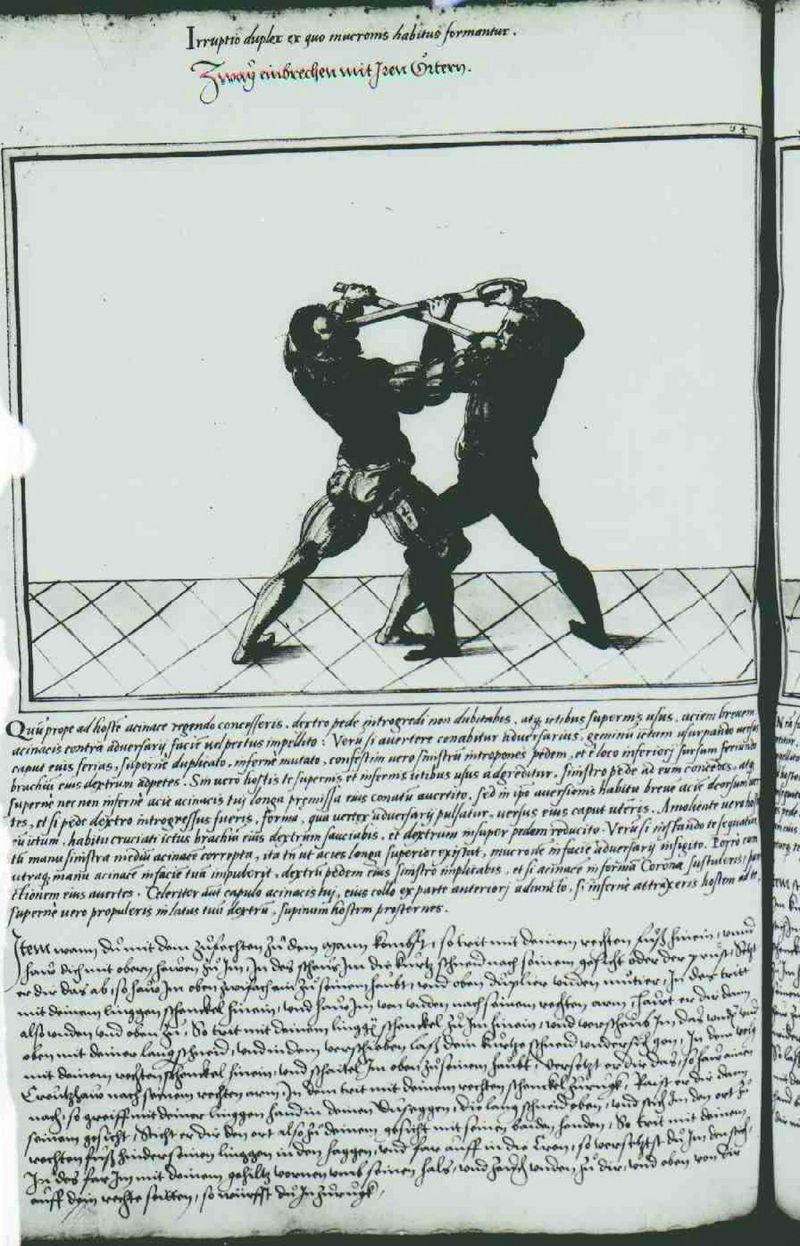 Irruptio duplex ex quo mucronis habitus formantur.
Zway einbrechen mit Iren Örtern.
Quū prope ad hostē acinace regendo concesseris, dextro pede introgredi non dubitabis, atq; ictibus supernis usus, aciem brevem
acinacis contra adversarij faciē vel pectus impellito: Verū si avertere conabitur adversarius, geminū ictum usurpando versus
caput eius ferias, superne duplicato, inferne mutato, confestim vero sinistrū intropones pedem, et e loco inferiorj sursum feriendo
brachiū eius dextrum adpetes. Sin vero hostis te supernis et infernis ictibus usus adgrediatur, sinistro pede ad eum concedas, atq;
superne nec non inferne acie acinacis tuj longa premissa eius conatū avertito, sed in ipso aversionis habitu breve acie deorsum
tes, et si pede dextro introgressus fueris, forma, qua vertex adversarij pulsatur, versus eius caput uteris. Amoliente vero
eū ictum, habitu cruciati ictus brachiū eius dextrum sauciabis, et dextrum insuper pedem reducito. Verū si instando te sequatur
tū manu sinistra mediū acinacē correpta, ita tñ ut acies longa superior existat, mucronē in facie adversarij infigito. Porro
utraq; manu acinacē in faciē tuā impulerit, dextrū pedem eius sinistro implicabis, et si acinacē in formā Corona sustuleris,
ctionem eius avertes. Celeriter aūt capulo acinacis tuj, eius collo ex parte anteriorj adiuncto, si inferne attraxeris hostem ad te,
superne vero propuleris in latus tuū dextrū, supinum hostem prosternes.
Item wann du mit dem zufechten zu dem mann kombst, so trit mit deinem rechten fuß hinein, unnd
haw dich mit obern hawen zu Im, In des scheub Im die kurtz schneid nach seinem gesicht oder der prust, Setzt
er dir das ab, so haw Im oben zwifach ein zu seinem haubt, und oben duplier unden mutier, In des tritt
mit deinem linggen schenckel hinein, und haw Im von unden nach seinem rechten arm, hawt er dir dann
also unden und oben zu, So trit mit deinem linggē schenckel zu Im hinein, und verscheub Im, das unden und
oben mit deiner lang schneid, und in dem verschieben lasß dein kurtze schneid undersich gon, In dem
mit deinem rechten schenckel hinein, und schaitel Im oben zu seinem haubt, versetzt er dir das, so haw einen
Creutzhaw nach seinem rechten arm, In dem trit mit deinem rechten schenckel zurugk, Raist er dir dann
nach, so greiff mit deiner linggen hand in deinen Duseggen, die lang schneid oben, und stich Im den ort zu
seinem gesicht, Sticht er dir den ort also zu deinem gesicht mit seinen baiden henden, So trit mit deinem
rechten fuß hinder seinen linggen in den saggen, und far auff in die Cron, so versetzstu Im den stich,
In des far Im mit deinem gehiltz vornen umb seinen hals, und zeuch unden, zu dir, und oben von dir
auff dein rechte seitten, so würffst du In zurugk,